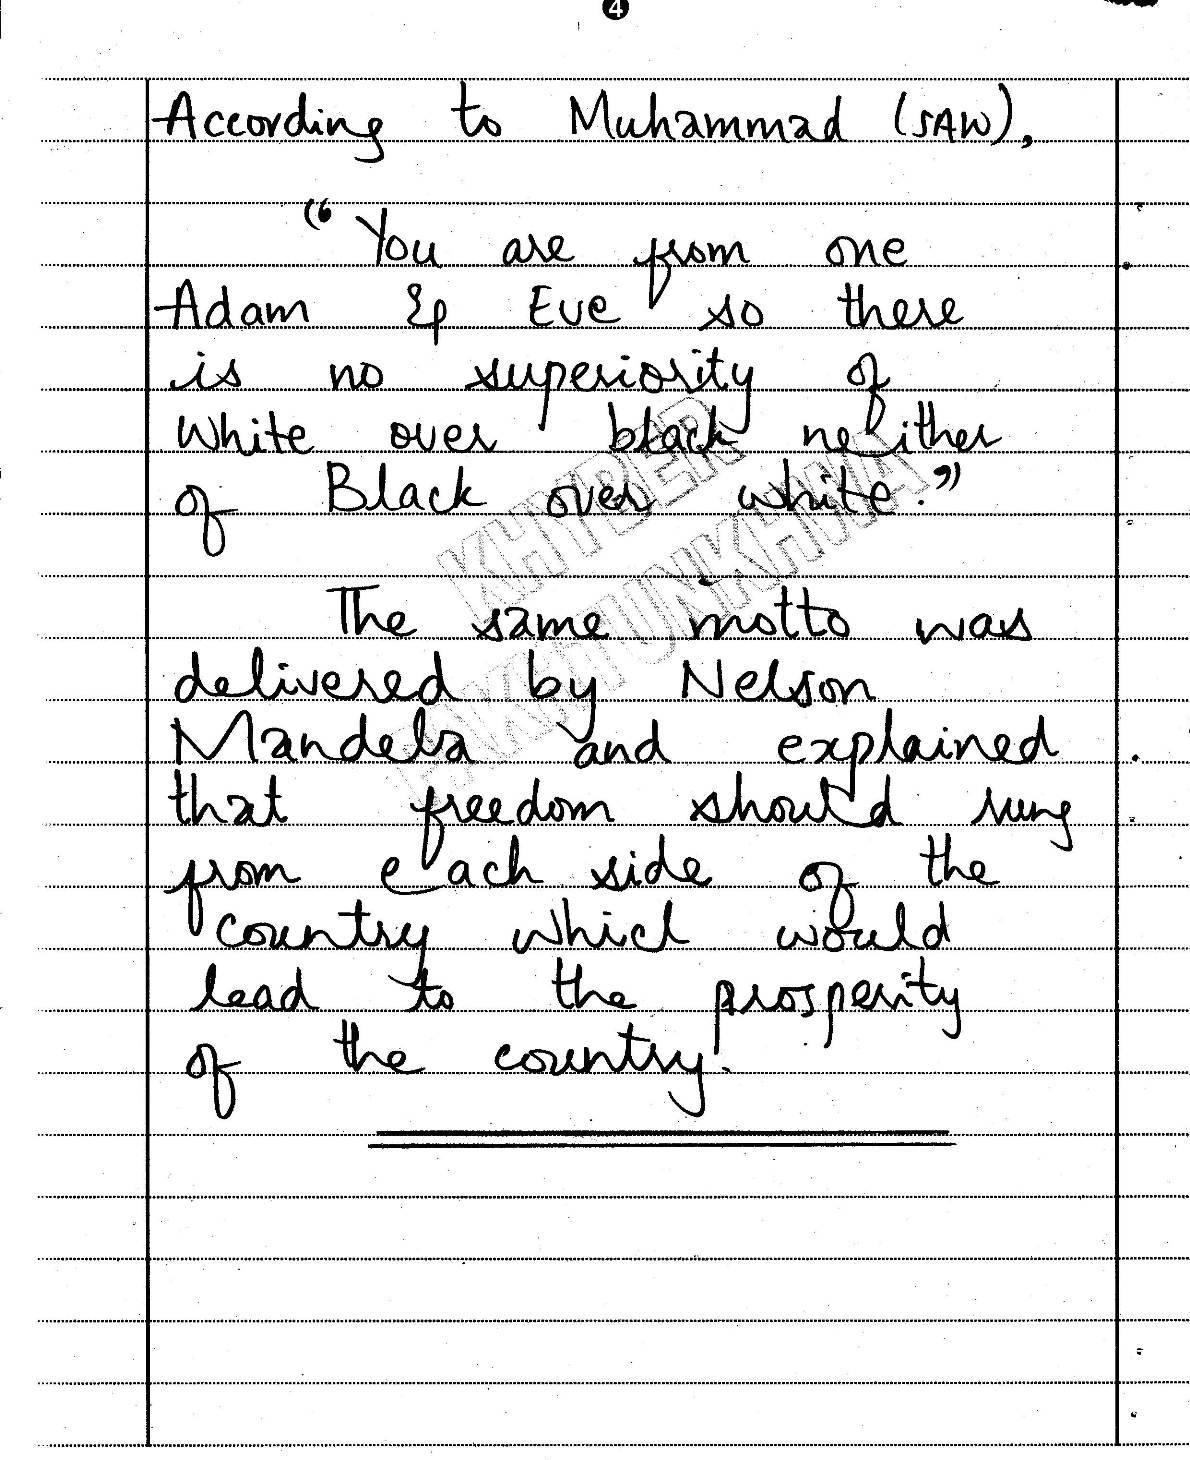 4
According to Muhammad (SAW),
"You are from one
Adam & Eve so there
is no superiority of
White over black neither
of Black over white."
KHYBER
PAKHTUNKHWA
The same motto was
delivered by Nelson
Mandela and explained
that freedom should rung
from each side of the
country which would
lead to the prosperity
of the country.